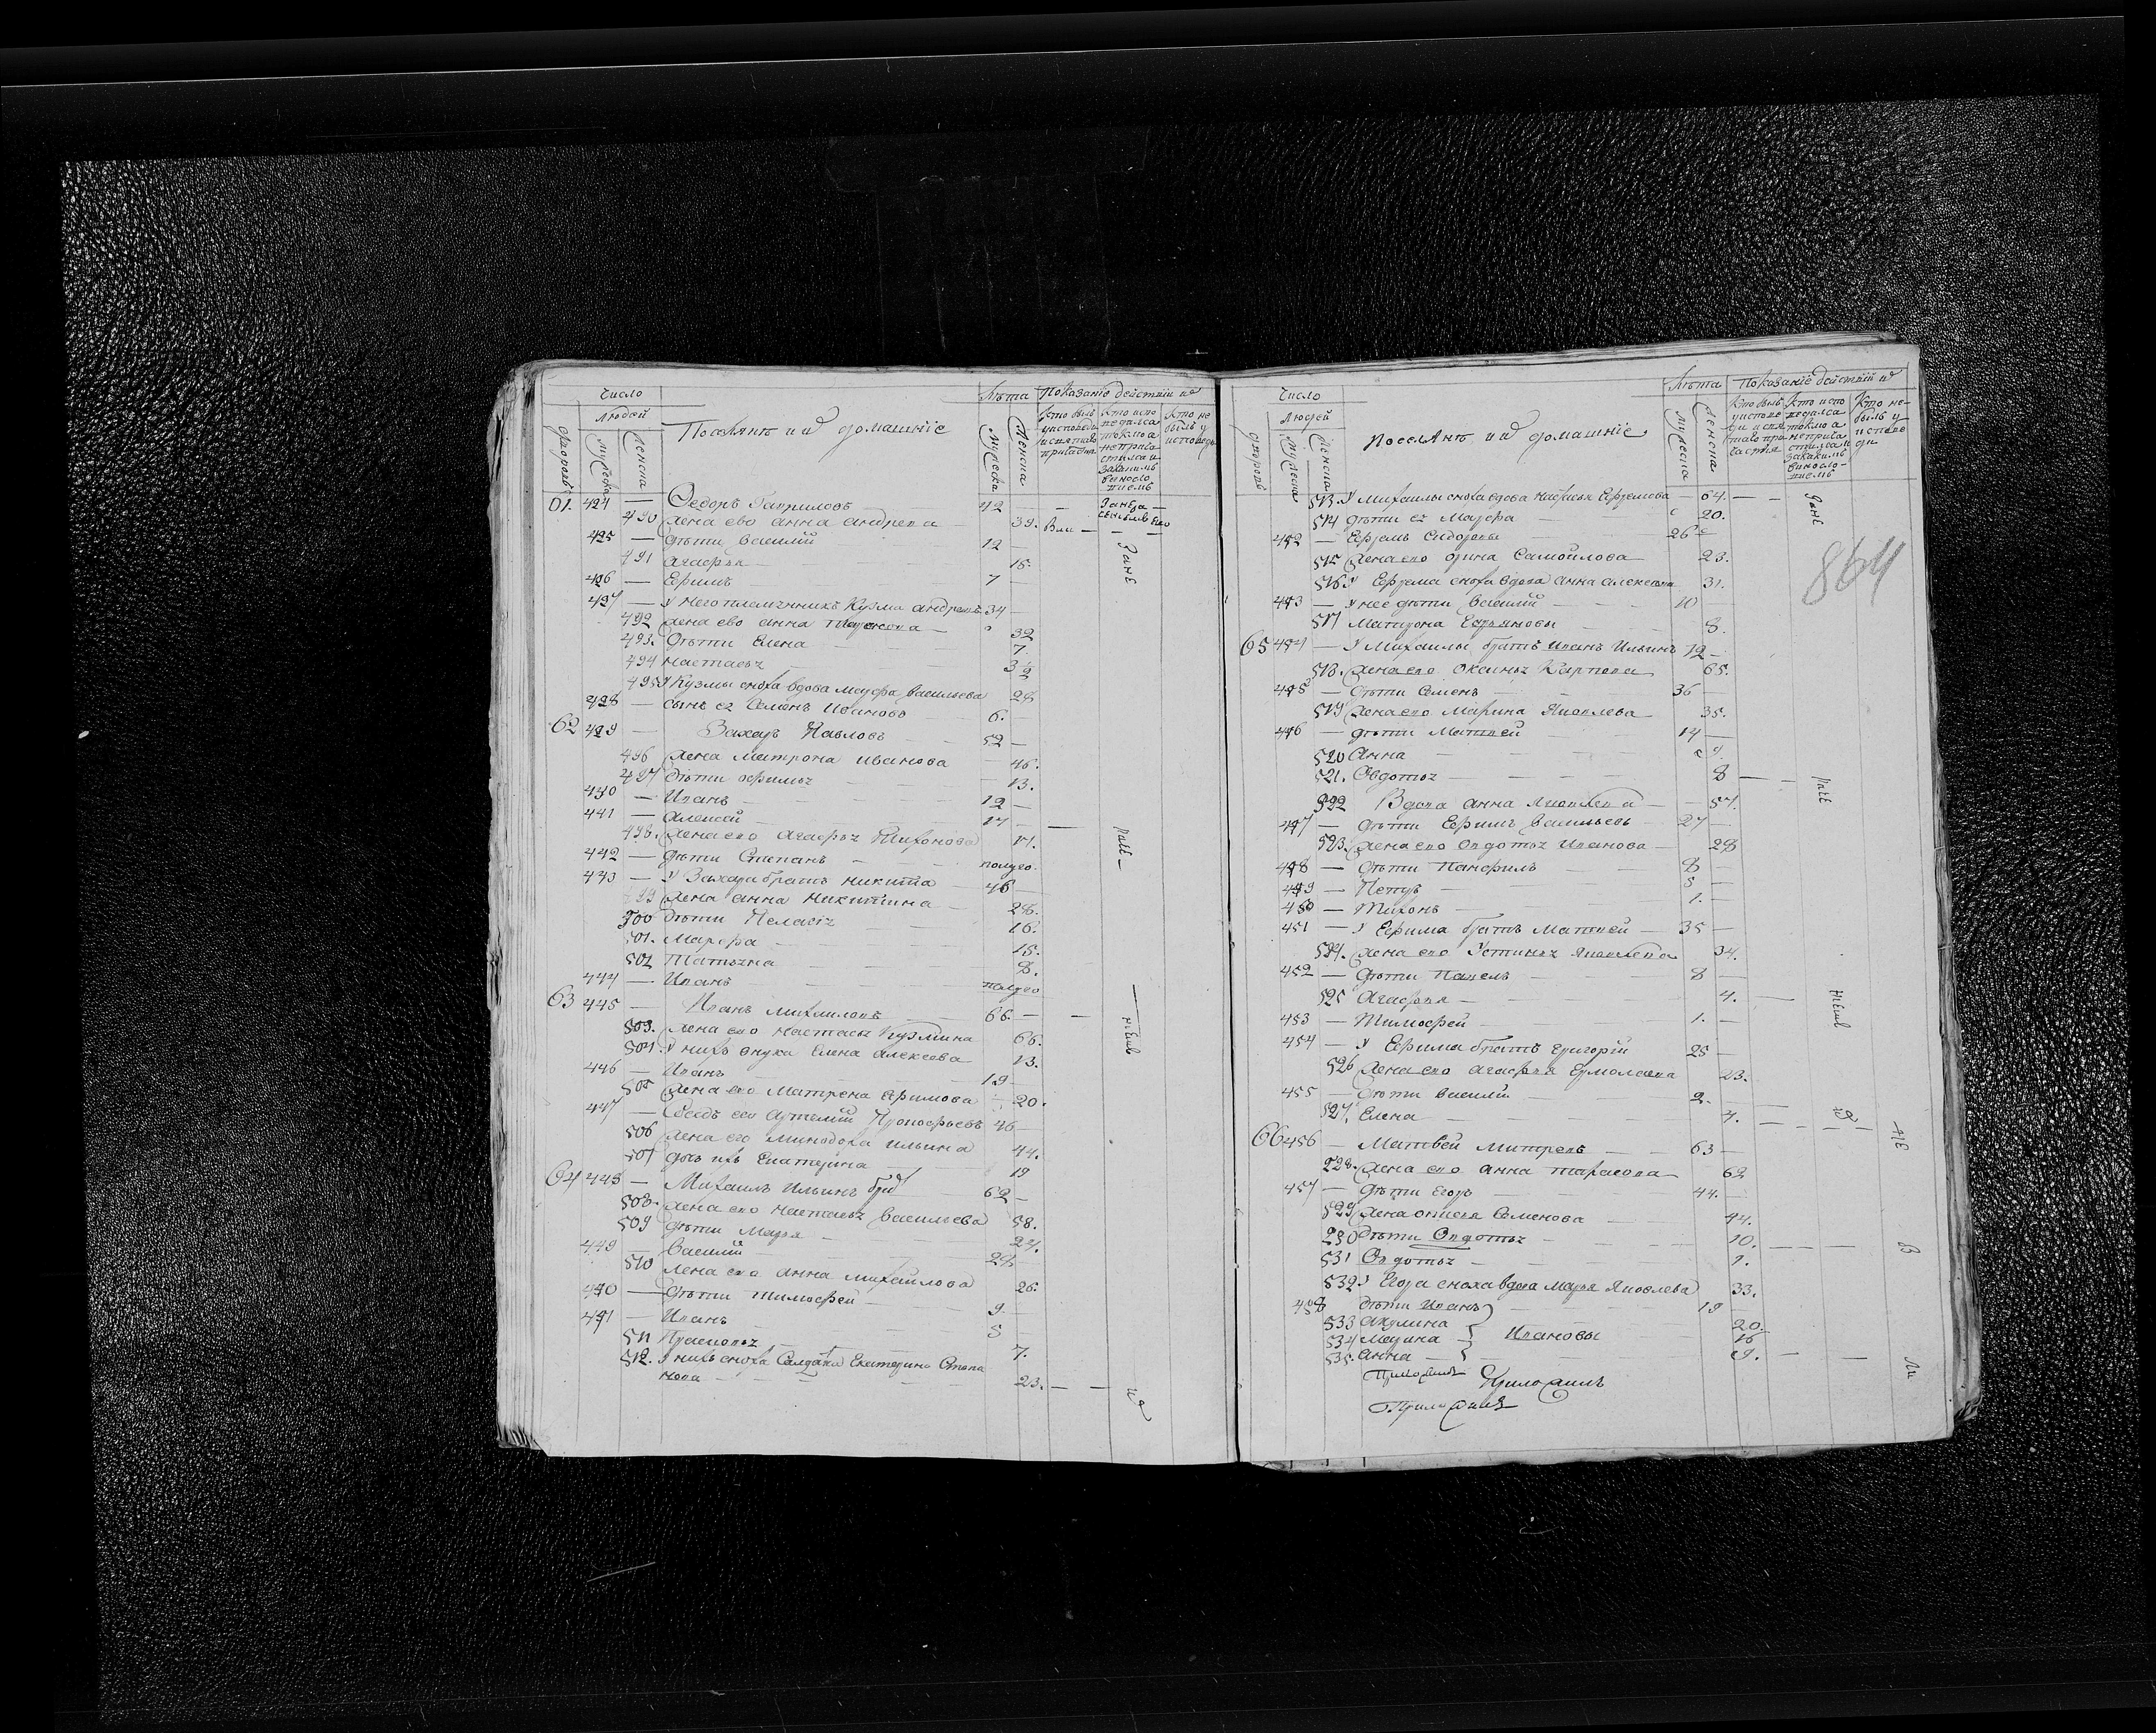 Число
Лѣта Показаніе действій ихъ
Людей
Поселянѣ и ихъ домашніе
дворовъ
мужеска
женска
мужеска
женска
кто былъ у исповеди и святаго причастія
кто исповедался токмо а непричастился и закакимъ винословіемъ
кто не былъ у исповеди
61. 424 — Федоръ Гавриловъ 42
490 жена ево анна андреева 39.
425 — дѣти василий 12
491 агафья 15
426 — Ефимъ 7
427 — У него племянникъ Кузма андреевъ 34
492 жена ево анна 32
493. дѣти Елена 7.
494 настасья 3½
495 У Кузмы сноха вдова мавра васильева 28
428 — сынъ ея Семенъ Ивановъ 6.
62 429 — Захаръ Павловъ 52
496 жена Матрона Иванова 46.
497 дѣти 13.
440 — Иванъ 12
441 — алексей 17
498. жена ево агафья Тихонова 17.
442 — дѣти Степанъ полуго
443 — У Захара братъ никита 46
499 жена анна никитина 28.
500 дѣти Пелагея 16.
501. Марфа 15.
502 Татьяна 8.
444 — Иванъ полуго
63 445 — Иванъ михаиловъ 66.
503. жена ево настасья Кузмина 66.
504. У нихъ внука Елена алексеева 13.
446 — Иванъ 19
505 жена ево Матрена ефимова 20.
447 — Прокофьевъ 46
506 жена его минодора ильина 44.
507 дочь ихъ Екатерина 19
64 448 — Михаилъ Ильинъ 62
508. жена ево настасья васильева 58.
509 дѣти Марья 24.
449 — Василий 28
510 жена ево анна михайлова 26.
440 — дѣти тимофей 9.
441 — Иванъ 5
511 Прасковья 7.
512. У нихъ сноха Салдатка Екатерина Степанова 23.
Число
Лѣта Показаніе действій ихъ
Людей
поселянѣ и ихъ домашніе
дворовъ
мужеска
женска
мужеска
женска
Кто былъ у исповеди и святаго причастія
Кто исповедался токмо а непричастился и закакимъ винословіемъ
Кто небылъ у исповеди
864
513. У михаилы сноха вдова Ефремова 64.
514 дѣти ея Мавра 20.
442 — Ефремъ Сидоровы 26
515 жена ево орина Самойлова 23.
516 У Ефрема сноха вдова анна алексеева 31.
443 — У нее дѣти василий 10
517 Матрона 8.
65 454 — У Михаилы братъ Иванъ Ильинъ 72
518. жена ево Оксинья Карпова 65.
445 — дѣти Семенъ 36
519 жена ево Марина Яковлева 35.
446 — дѣти Матвей 14
520 Анна 9.
521. Овдотья 8
522 Вдова анна Яковлева 57.
447 — дѣти Ефимъ васильевъ 27
523. жена ево Овдотья Иванова 28
448 — дѣти Панфилъ 8
449 — Петръ 5
450 — Тихонъ 1.
451 — У Ефима братъ Матвей 35
524. жена ево Устинья Яковлева 34.
452 — дѣти Павелъ 8
525 Агафья 4.
453 — Тимофей 1.
454 — У Ефима братъ Григорій 25
526 жена ево агафья Ермолаева 23.
455 — дѣти василий 2.
527. Елена 4.
66 456 — Матвей Митревъ 63
528. жена ево анна тарасова 62
457 — дѣти Егоръ 44.
529 жена Семенова 44.
530 дѣти Овдотья 10.
531 Овдотья 1.
532 У Егора сноха вдова Марья Яковлева 33.
458 дѣти Иванъ 19
533 акулина 20.
534 Марина Ивановы 16
535. анна 9.